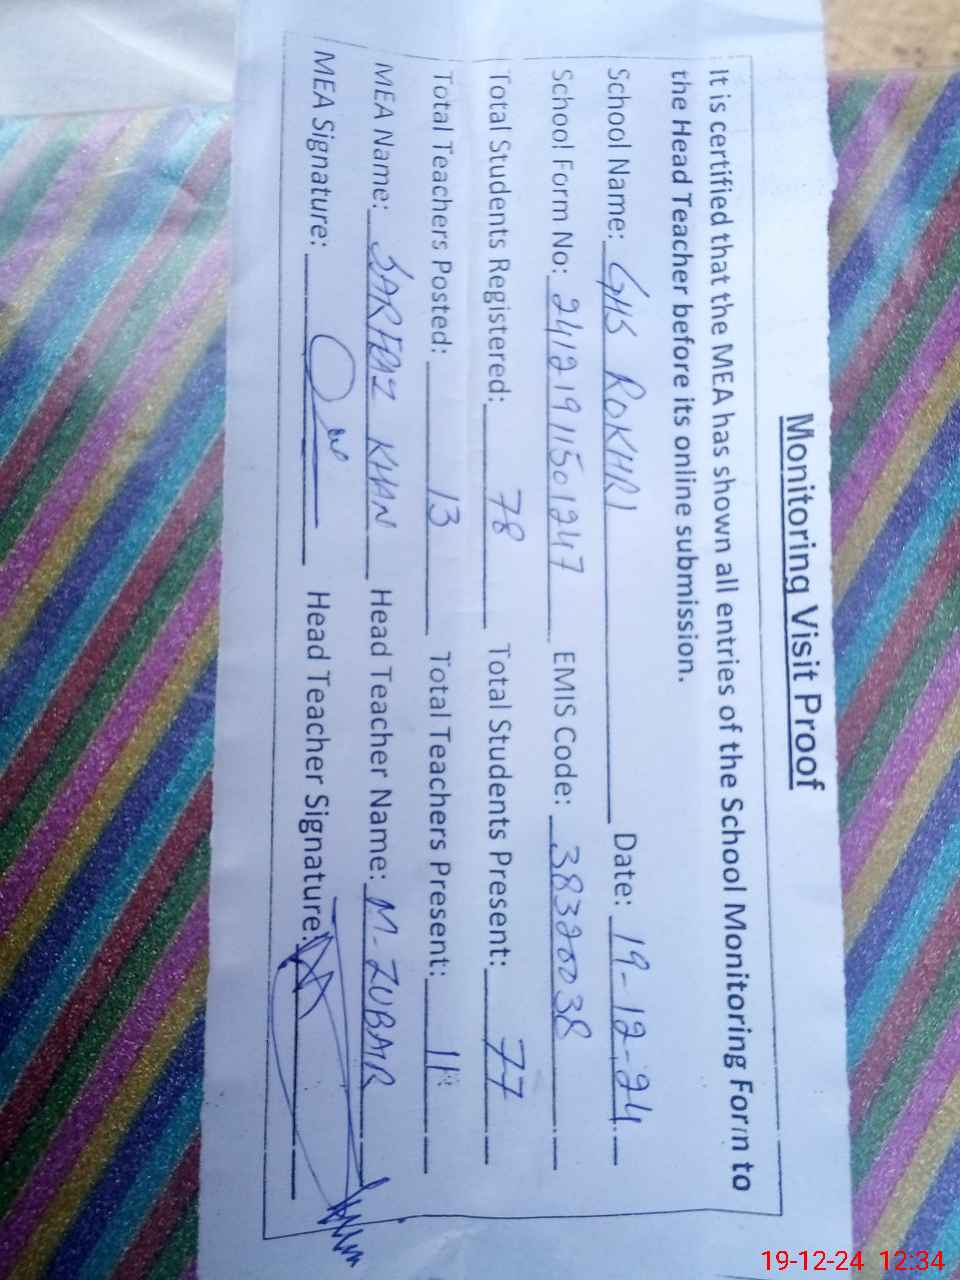 Monitoring Visit Proof
It is certified that the MEA has shown all entries of the School Monitoring Form to
the Head Teacher before its online submission.
School Name: GHS ROKHRI Date: 19-12-24
School Form No: 24121911501247 EMIS Code: 38320038
Total Students Registered: 78 Total Students Present: 77
Total Teachers Posted: 13 Total Teachers Present: 11
MEA Name: SARFRAZ KHAN Head Teacher Name: M-ZUBAIR
MEA Signature: Head Teacher Signature:
19-12-24 12:34